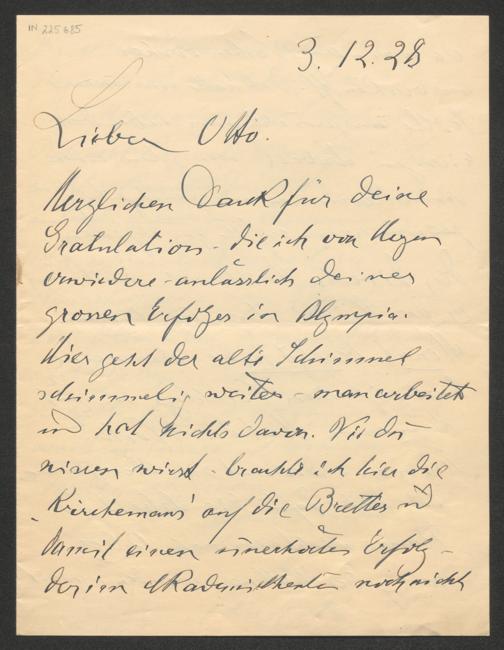 IN 225685
3.12.28
Lieber Otto.
Herzlichen Dank für deine
Gratulation - die ich von Herzen
erwiedere - anlässlich deines
grossen Erfolges in Olympia.
Hier geht der alte Schimmel
schimmelig weiter - man arbeitet
und hat nichts davon. Wie du
wissen wirst - brachte ich hier die
auf die Bretter und
damit einen unerhörten Erfolg -
der im Akademietheater noch nicht